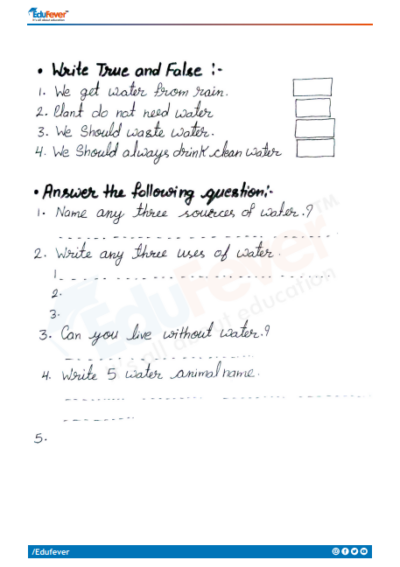 EduFever
• Write True and False :-
1. We get water from rain.
2. Plant do not need water
3. We Should waste water.
4. We Should always drink clean water
• Answer the following question:-
1. Name any three sources of water.?
2. Write any three uses of water.
1
2.
3.
3. Can you live without water.?
4. Write 5 water animal name.
5.
EduFever™
it's all about education
/Edufever